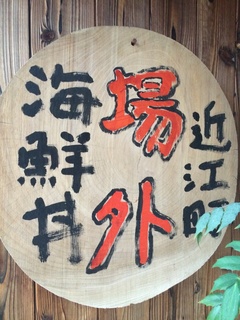 近江町
場外
海鮮丼